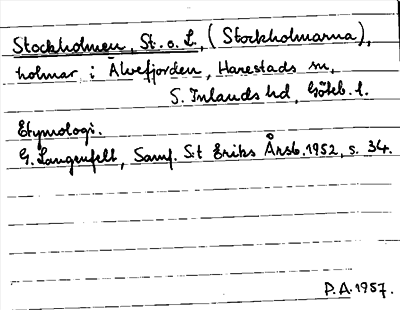 Stockholmen, St. o. L. (Stockholmarna),
holmar i Älvefjorden, Harestads sn,
S. Inlands hd, Göteb. l.
Etymologi.
G. Langenfelt, Samf. S:t Eriks Årsb. 1952, s. 34.
P.A. 1957.